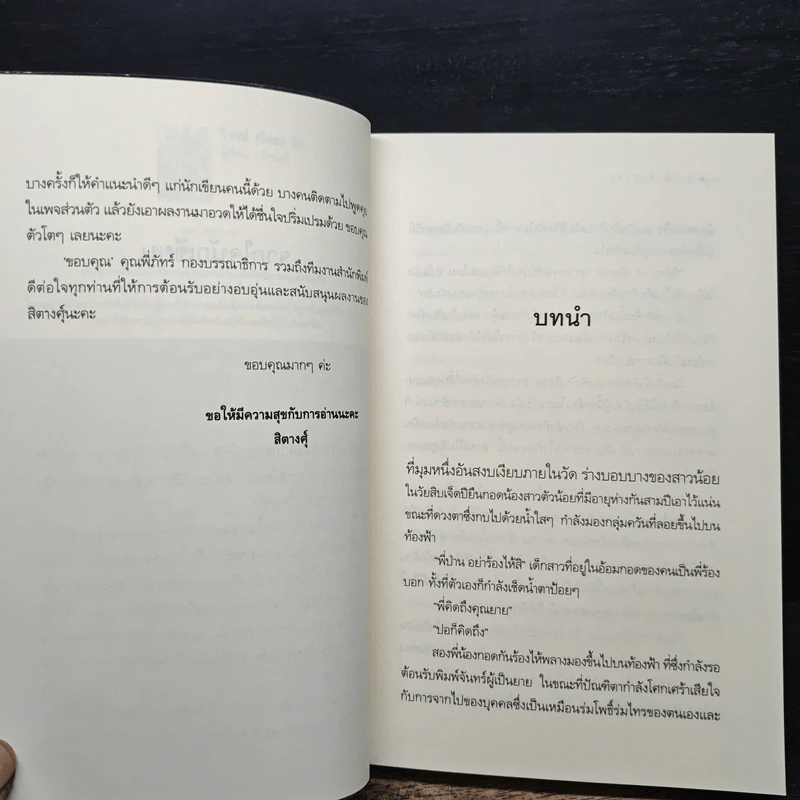 บางครั้งก็ให้คำแนะนำดีๆ แก่นักเขียนคนนี้ด้วย บางคนติดตามไปพูดคุย
ในเพจส่วนตัว แล้วยังเอาผลงานมาอวดให้ได้ชื่นใจปริ่มเปรมด้วย ขอบคุณ
ตัวโตๆ เลยนะคะ
‘ขอบคุณ’ คุณพี่ภัทร์ กองบรรณาธิการ รวมถึงทีมงานสำนักพิมพ์
ดีต่อใจทุกท่านที่ให้การต้อนรับอย่างอบอุ่นและสนับสนุนผลงานของ
สิตางศุ์นะคะ
ขอบคุณมากๆ ค่ะ
ขอให้มีความสุขกับการอ่านนะคะ
สิตางศุ์
บทนำ
ที่มุมหนึ่งอันสงบเงียบภายในวัด ร่างบอบบางของสาวน้อย
ในวัยสิบเจ็ดปียืนกอดน้องสาวตัวน้อยที่มีอายุห่างกันสามปีเอาไว้แน่น
ขณะที่ดวงตาซึ่งกบไปด้วยน้ำใสๆ กำลังมองกลุ่มควันที่ลอยขึ้นไปบน
ท้องฟ้า
“พี่ป่าน อย่าร้องไห้สิ” เด็กสาวที่อยู่ในอ้อมกอดของคนเป็นพี่ร้อง
บอก ทั้งที่ตัวเองก็กำลังเช็ดน้ำตาป้อยๆ
“พี่คิดถึงคุณยาย”
“ปอก็คิดถึง”
สองพี่น้องกอดกันร้องไห้พลางมองขึ้นไปบนท้องฟ้า ที่ซึ่งกำลังรอ
ต้อนรับพิมพ์จันทร์ผู้เป็นยาย ในขณะที่ปัณฑิตากำลังโศกเศร้าเสียใจ
กับการจากไปของบุคคลซึ่งเป็นเหมือนร่มโพธิ์ร่มไทรของตนเองและ